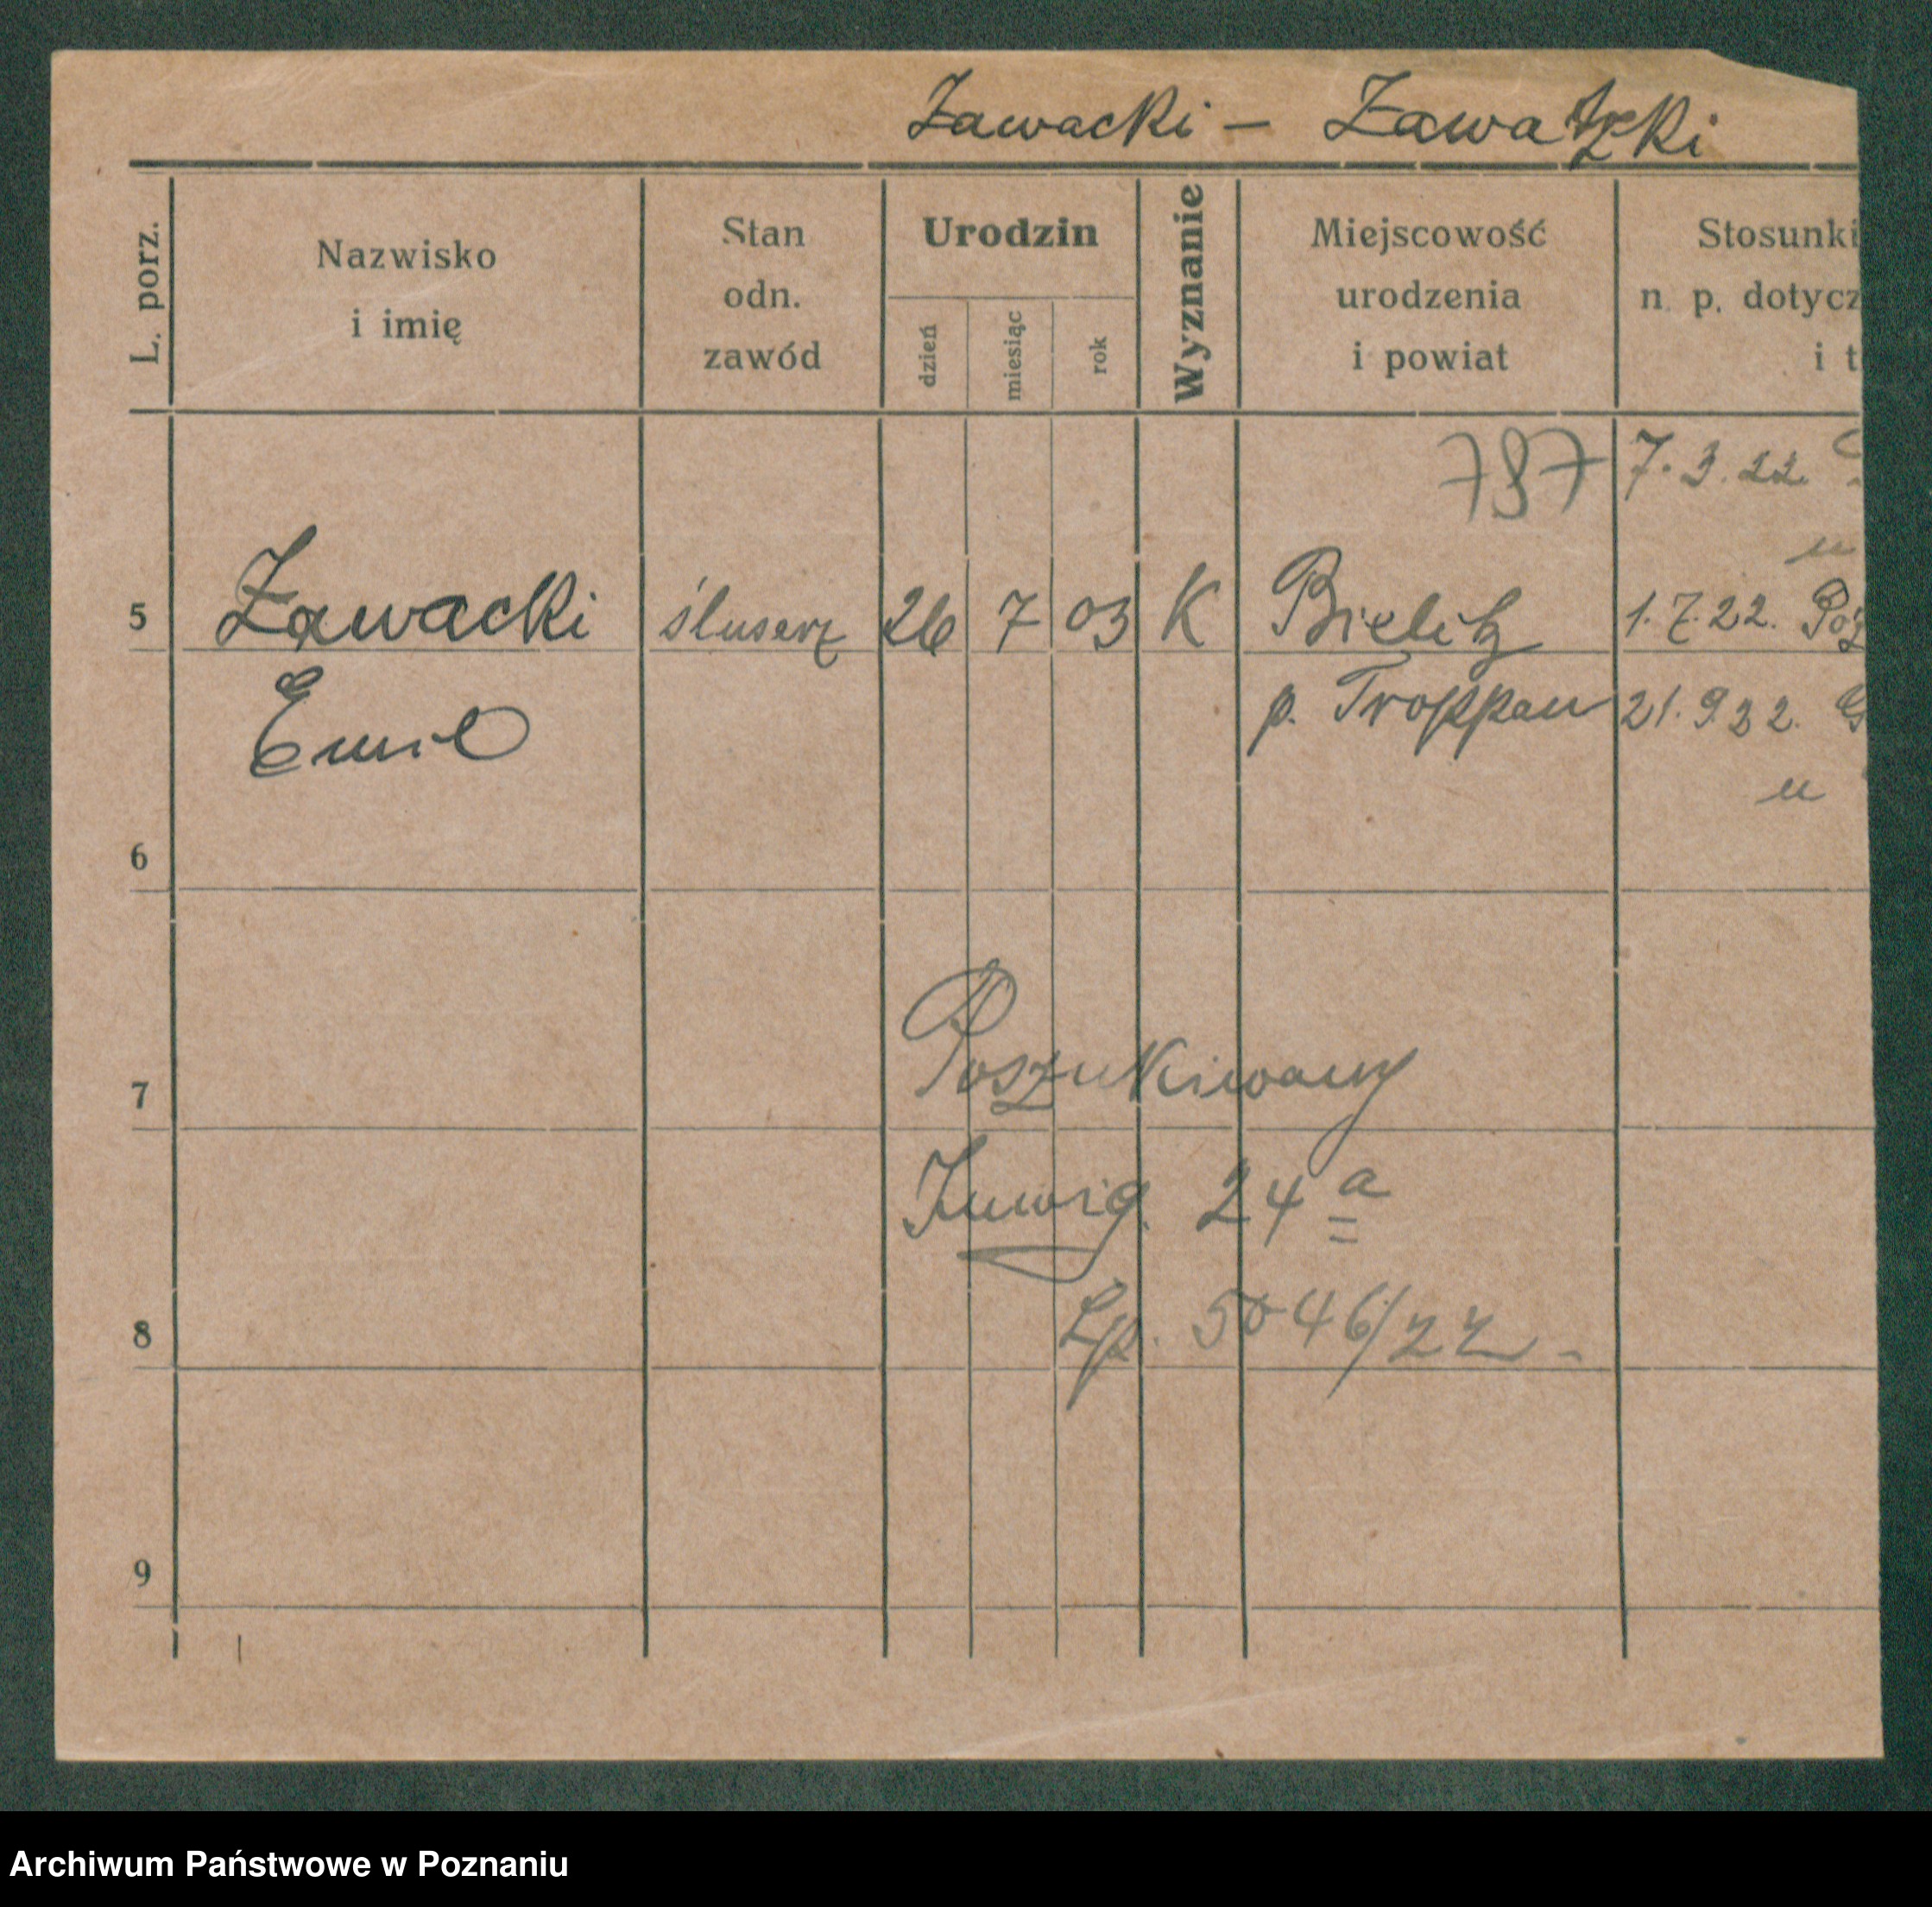 Zawacki – Zawatzki
L. porz.
Nazwisko
i imię
Stan
odn.
zawód
Urodzin
dzień
miesiąc
rok
Wyznanie
Miejscowość
urodzenia
i powiat
Stosunki
n. p. dotycz
i t
787 7.3.22
u
5 Zawacki ślusarz 26 7 03 K Bielitz 1.7.22. Poz
Emil p. Troppau 21.9.22. G
u
6
Poszukiwany
7
24 a
Lp. 5046/22 -
8
9
Archiwum Państwowe w Poznaniu